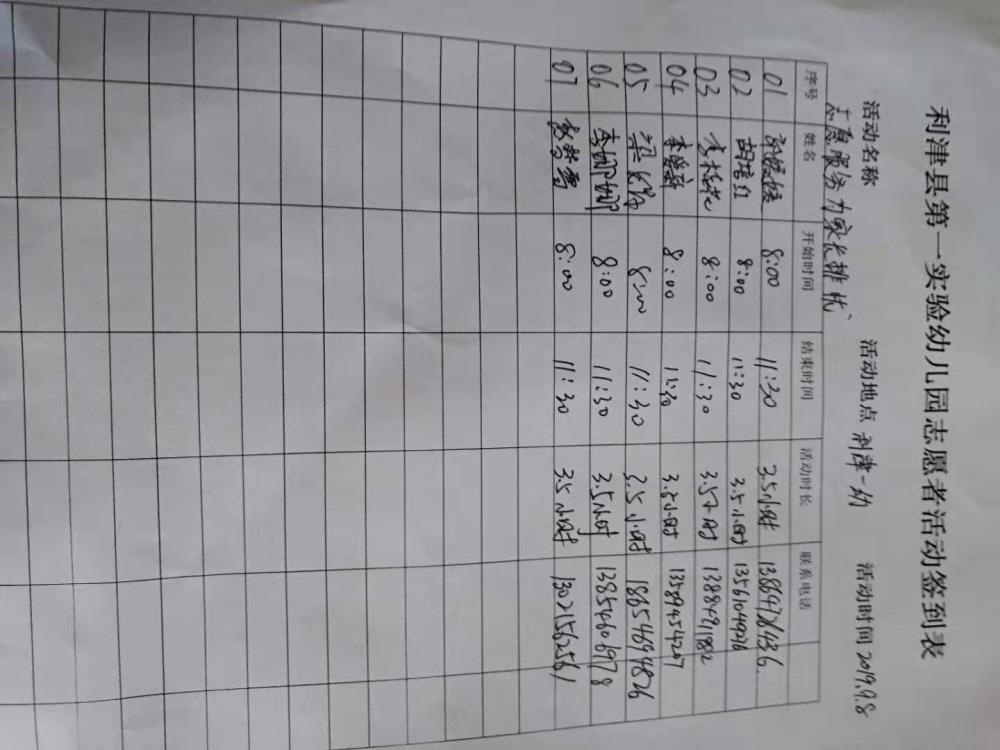 利津县第一实验幼儿园志愿者活动签到表
活动名称 志愿服务为家长排忧 活动地点 利津一幼 活动时间 2019.9.8
序号 姓名 开始时间 结束时间 活动时长 联系电话
01 8:00 11:30 3.5小时
02 胡培红 8:00 11:30 3.5小时 13561049276
03 8:00 11:30 3.5小时 13884991882
04 李爱新 8:00 11:30 3.5小时 13589454207
05 8:00 11:30 3.5小时 18654694826
06 李娜娜 8:00 11:30 3.5小时 13854606978
07 8:00 11:30 3.5小时 13021562561